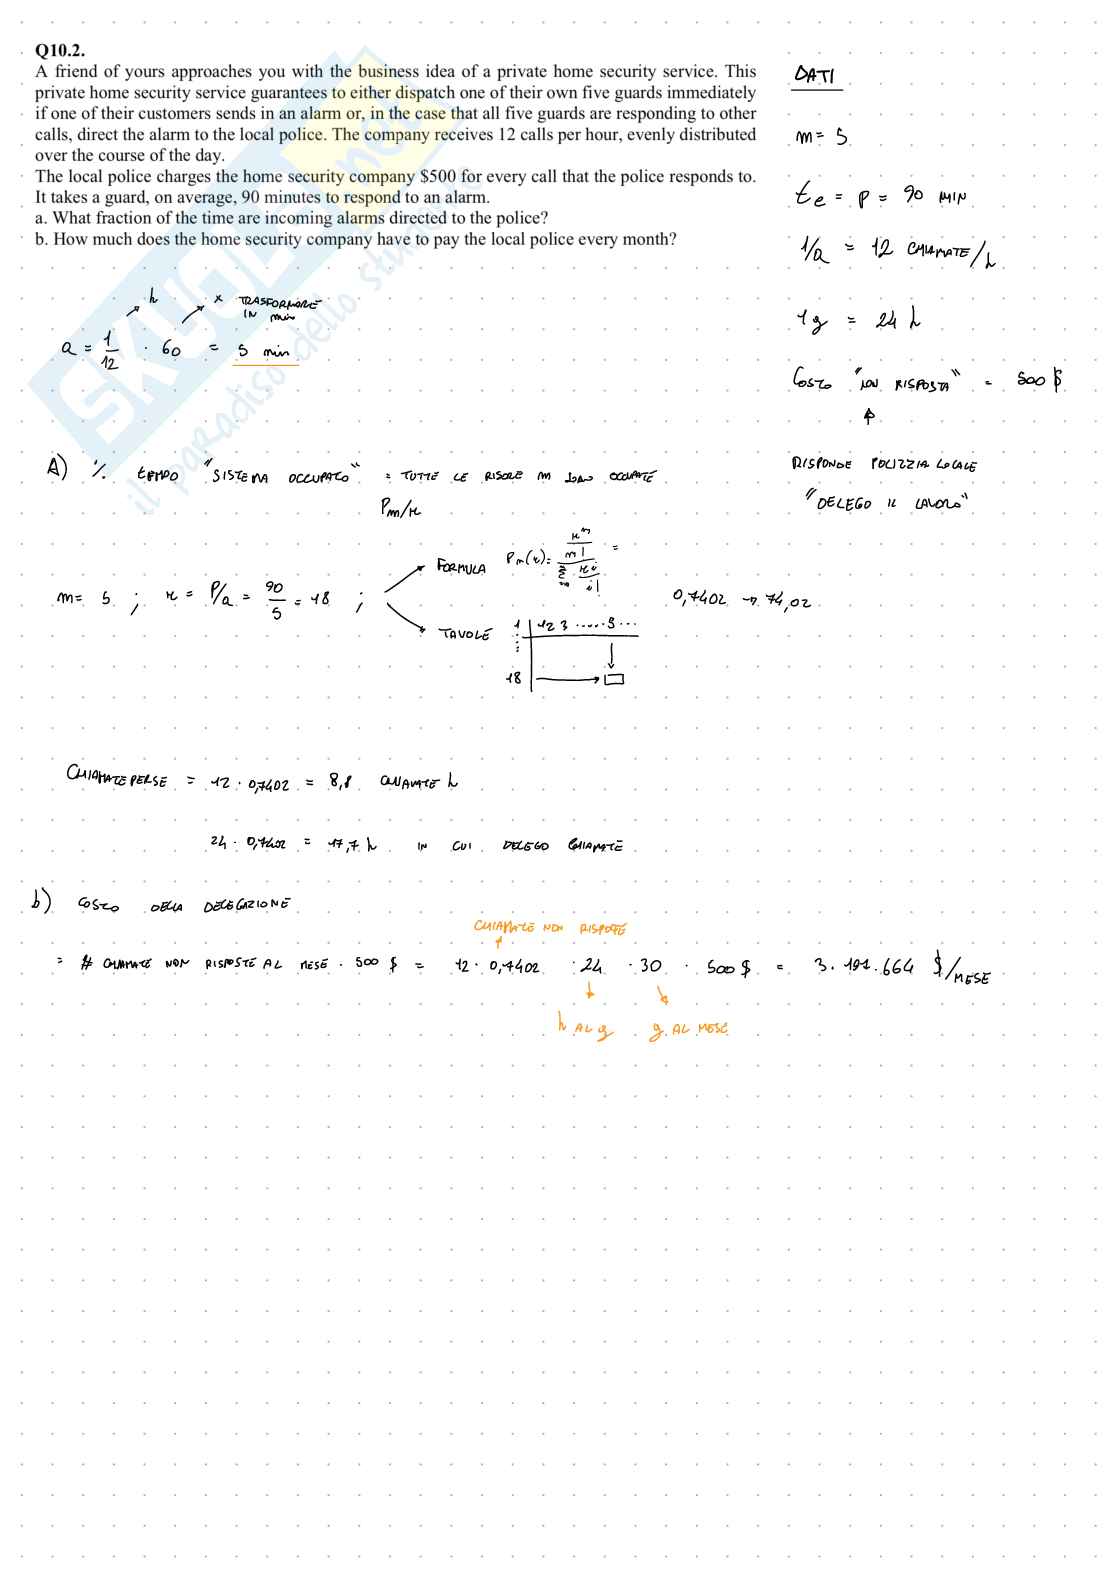 Q10.2.
A friend of yours approaches you with the business idea of a private home security service. This
private home security service guarantees to either dispatch one of their own five guards immediately
if one of their customers sends in an alarm or, in the case that all five guards are responding to other
calls, direct the alarm to the local police. The company receives 12 calls per hour, evenly distributed
over the course of the day.
The local police charges the home security company $500 for every call that the police responds to.
It takes a guard, on average, 90 minutes to respond to an alarm.
a. What fraction of the time are incoming alarms directed to the police?
b. How much does the home security company have to pay the local police every month?
DATI
m = 5
te = p = 90 MIN
1/a = 12 CHIAMATE/h
1g = 24 h
COSTO "NON RISPOSTA" = 500 $
RISPONDE POLIZZIA LOCALE
"DELEGO IL LAVORO"
h x TRASFORMARE
IN min
a = 1/12 · 60 = 5 min
A) % TEMPO "SISTEMA OCCUPATO" = TUTTE LE RISORE m SONO OCCUPATE
Pm/r
m = 5 ; r = P/a = 90/5 = 18 ;
FORMULA Pm(r) = r^m/m! / Σ r^i/i! =
0,7402 → 74,02
TAVOLE 1 | 1 2 3 ..... 5 ...
18
CHIAMATE PERSE = 12 · 0,7402 = 8,8 CHIAMATE h
24 · 0,7402 = 17,7 h IN CUI DELEGO CHIAMATE
b) COSTO DELLA DELEGAZIONE
CHIAMATE NON RISPOSTE
= # CHIAMATE NON RISPOSTE AL MESE · 500 $ = 12 · 0,7402 · 24 · 30 · 500 $ = 3.197.664 $/MESE
h AL g g AL MESE
SKUOLA.net
il paradiso dello studente